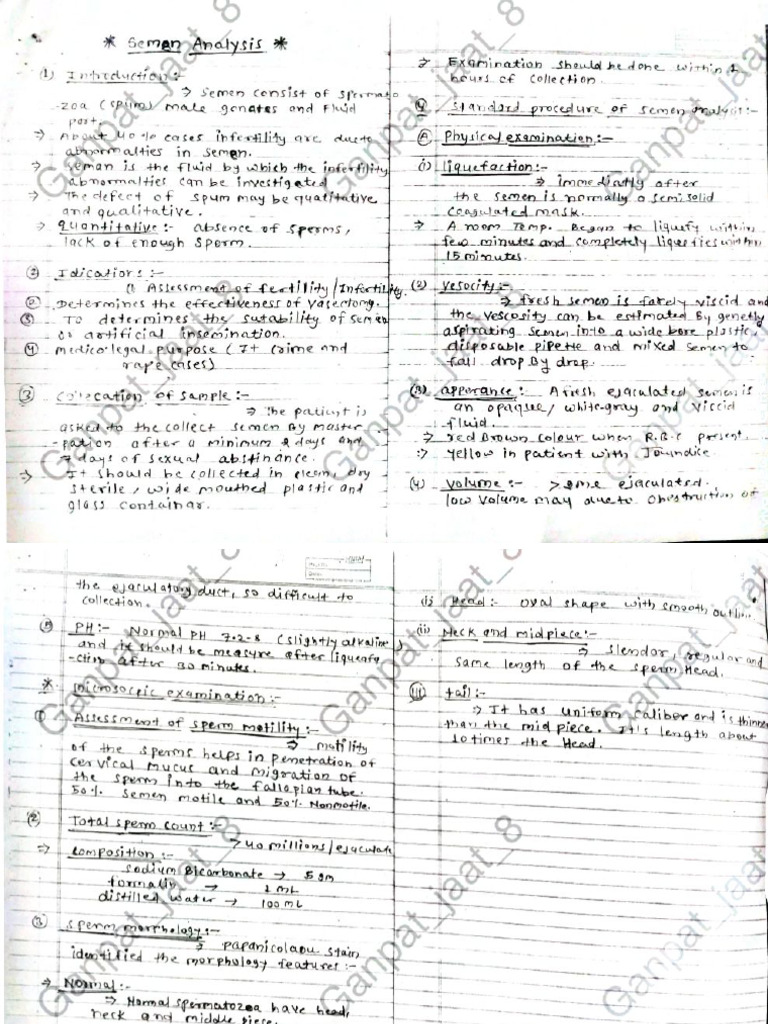 * Semen Analysis *
(1) Introduction :-
⇒ Semen consist of spermato
-zoa (spum) male gonates and Fluid
part.
⇒ About 40% cases infertility are due to
abnormalties in semen.
⇒ Seman is the fluid by which the infertility
abnormalties can be investigated
⇒ The defect of spum may be quatitative
and qualitative.
⇒ quantitative :- absence of sperms,
lack of enough sperm.
(2) Idications :-
(1) Assessment of fertility/Infertility.
(2) Determines the effectiveness of Vasectomy.
(3) To determines the sutability of semen
or artificial insemination.
(4) medicolegal purpose ( 7+ crime and
rape cases)
(3) Collecation of sample :-
⇒ The patient is
asked to the collect semen By master
-pation after a minimum 2 days and
7 days of sexual abstinance.
⇒ It should be collected in clean, dry
sterile, wide mouthed plastic and
glass containar.
⇒ Examination should be done within 1
hours of collection.
(4) Standard procedure of semen analysis:-
(A) Physical examination:-
(i) liquefaction:-
⇒ immediatly after
the semen is normally a semisolid
coagulated mask.
⇒ A room Temp. Began to liquify within
few minutes and completely liquefies within
15 minutes.
(2) Vescocity :-
⇒ fresh semen is fairly viscid and
the vescosity can be estimated By genetly
aspirating semen into a wide bore plastic,
disposable pipette and mixed semen to
fall drop By drop.
(3) apperance :- A fresh ejaculated semen is
an opaqse/ white-gray and viscid
fluid.
⇒ red Brown colour when R.B.C present.
⇒ yellow in patient with Joundice.
(4) Volume :- > 2ml ejaculated.
low volume may due to obnstruction of
the ejaculatory duct, so difficult to
collection.
(5) PH :- Normal PH 7.2-8 (slightly alkaline)
and it should be measure after liquefy
-ction after 30 minutes.
* microsocpic examination:-
(1) Assessment of sperm motility :-
⇒ motility
of the sperms helps in penetration of
cervical mucus and migration of
the sperm into the fallopian tube.
50% semen motile and 50% Nonmotile.
(2) Total sperm count :-
>40 millions/ejaculate
⇒ composition :-
sodium Bicarbonate → 5 gm
formalin → 1 mL
distilled water → 100 mL
(3) sperm morphology :-
⇒ papanicolaou stain
identified the morphology features :-
⇒ Normal :-
⇒ Normal spermatozoa have head,
neck and middle piece.
(i) Head :- oval shape with smooth outlin..
(ii) Neck and midpiece :-
⇒ slendor, regular and
same length of the sperm Head.
(iii) tail :-
⇒ It has uniform caliber and is thinner
than the mid piece. It's length about
10 times the Head.
Ganpat_jaat_8
Ganpat_jaat_8
Ganpat_jaat_8
Ganpat_jaat_8
Ganpat_jaat_8
Ganpat_jaat_8
Ganpat_jaat_8
Ganpat_jaat_8
Ganpat_jaat_8